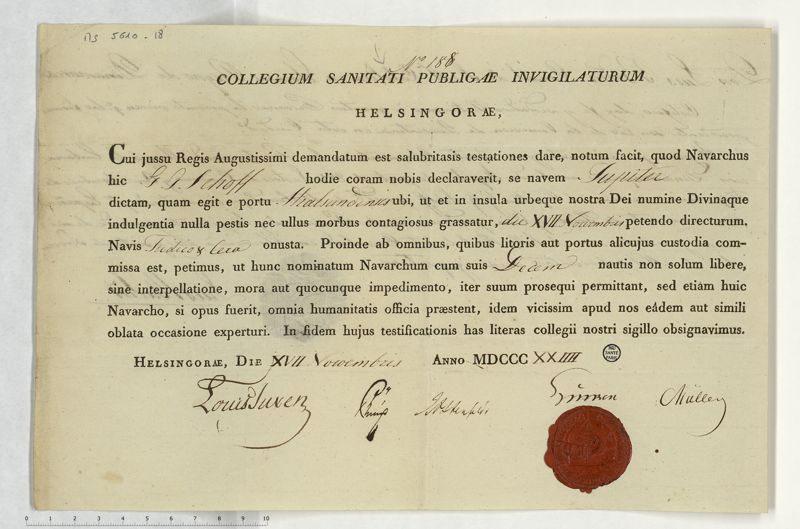 MS 5610 - 18
N.º 188
COLLEGIUM SANITATI PUBLICAE INVIGILATURUM
HELSINGORÆ,
Cui jussu Regis Augustissimi demandatum est salubritasis testationes dare, notum facit, quod Navarchus
hic G J Schoff hodie coram nobis declaraverit, se navem Jupiter
dictam, quam egit e portu Stralsundensis ubi, ut et in insula urbeque nostra Dei numine Divinaque
indulgentia nulla pestis nec ullus morbus contagiosus grassatur, die XVII Novembris petendo directurum.
Navis onusta. Proinde ab omnibus, quibus litoris aut portus alicujus custodia com-
missa est, petimus, ut hunc nominatum Navarchum cum suis Decem nautis non solum libere,
sine interpellatione, mora aut quocunque impedimento, iter suum prosequi permittant, sed etiam huic
Navarcho, si opus fuerit, omnia humanitatis officia præstent, idem vicissim apud nos eádem aut simili
oblata occasione experturi. In fidem hujus testificationis has literas collegii nostri sigillo obsignavimus.
HELSINGORÆ, DIE XVII Novembris ANNO MDCCC XXIIII
Louis Tuxen Müller
0 1 2 3 4 5 6 7 8 9 10